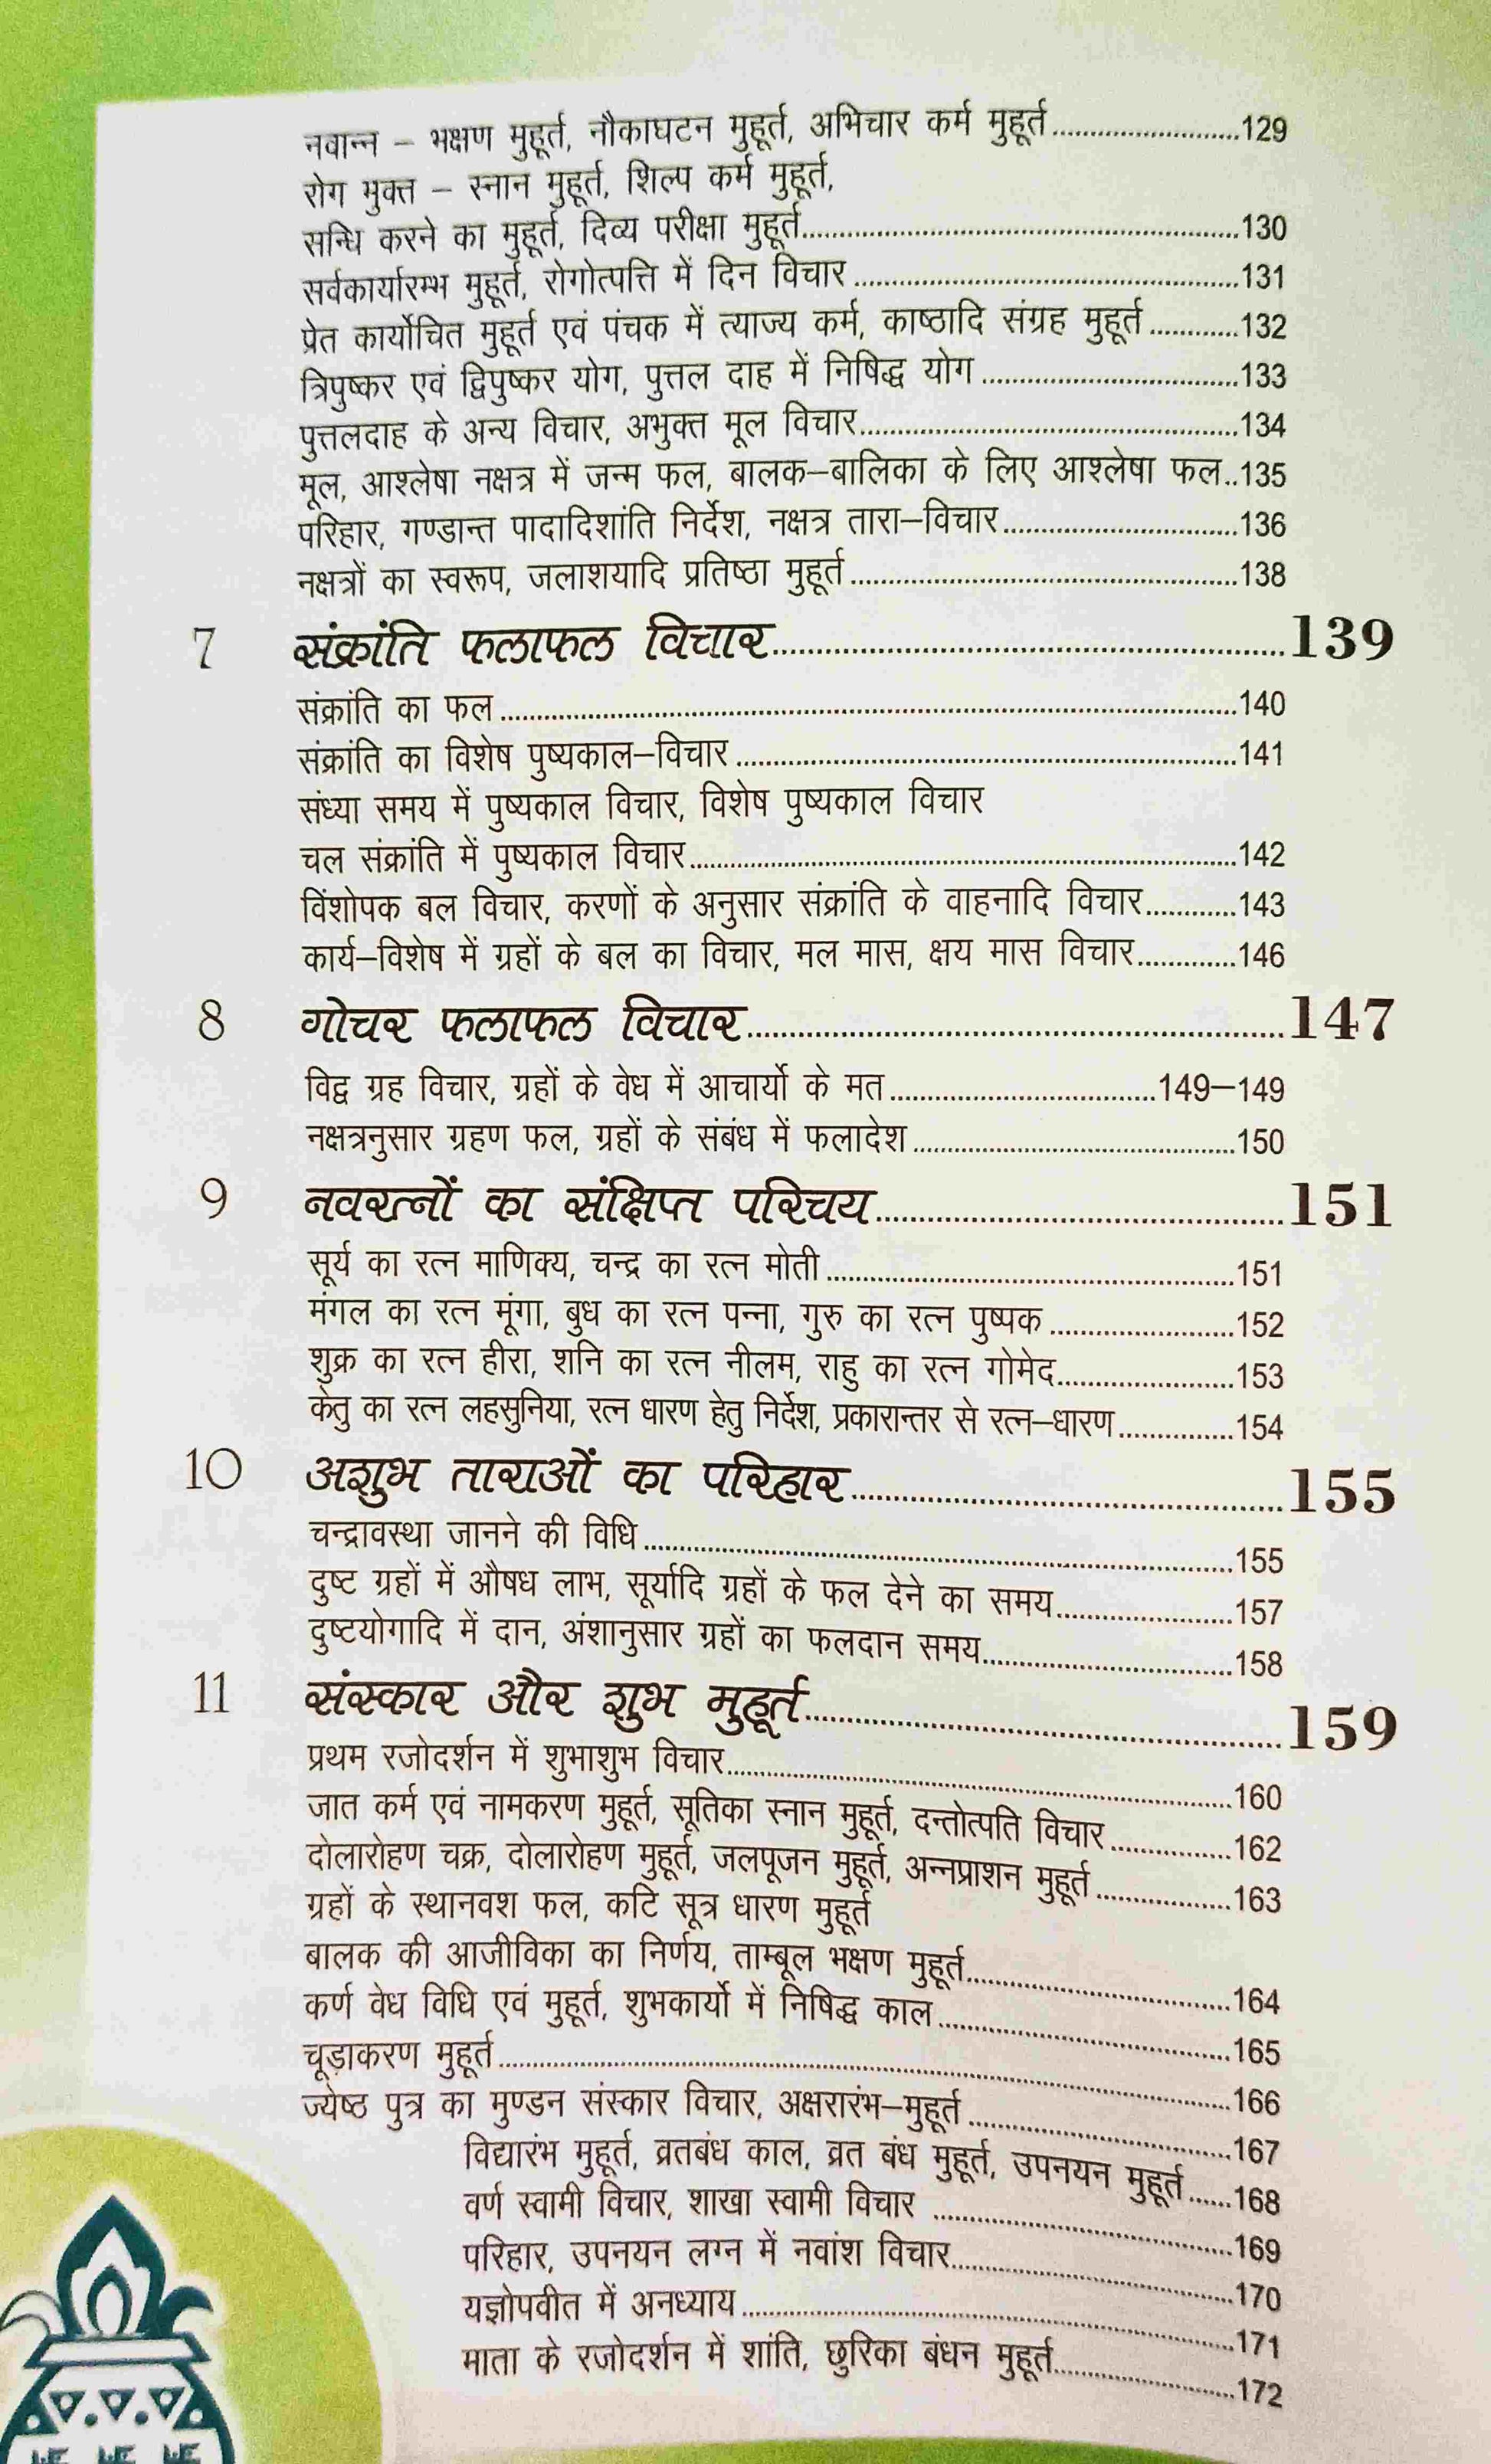 नवान्न – भक्षण मुहूर्त, नौकाघटन मुहूर्त, अभिचार कर्म मुहूर्त.........................129
रोग मुक्त – स्नान मुहूर्त, शिल्प कर्म मुहूर्त,
सन्धि करने का मुहूर्त, दिव्य परीक्षा मुहूर्त.........................130
सर्वकार्यारम्भ मुहूर्त, रोगोत्पत्ति में दिन विचार.........................131
प्रेत कार्योचित मुहूर्त एवं पंचक में त्याज्य कर्म, काष्ठादि संग्रह मुहूर्त............132
त्रिपुष्कर एवं द्विपुष्कर योग, पुत्तल दाह में निषिद्ध योग.........................133
पुत्तलदाह के अन्य विचार, अभुक्त मूल विचार.........................134
मूल, आश्लेषा नक्षत्र में जन्म फल, बालक–बालिका के लिए आश्लेषा फल..135
परिहार, गण्डान्त पादादिशांति निर्देश, नक्षत्र तारा–विचार.........................136
नक्षत्रों का स्वरूप, जलाशयादि प्रतिष्ठा मुहूर्त.........................138
7 संक्रांति फलाफल विचार.........................139
संक्रांति का फल.........................140
संक्रांति का विशेष पुष्यकाल–विचार.........................141
संध्या समय में पुष्यकाल विचार, विशेष पुष्यकाल विचार
चल संक्रांति में पुष्यकाल विचार.........................142
विंशोपक बल विचार, करणों के अनुसार संक्रांति के वाहनादि विचार............143
कार्य–विशेष में ग्रहों के बल का विचार, मल मास, क्षय मास विचार............146
8 गोचर फलाफल विचार.........................147
विद्व ग्रह विचार, ग्रहों के वेध में आचार्यो के मत.........................149–149
नक्षत्रनुसार ग्रहण फल, ग्रहों के संबंध में फलादेश.........................150
9 नवरत्नों का संक्षिप्त परिचय.........................151
सूर्य का रत्न माणिक्य, चन्द्र का रत्न मोती.........................151
मंगल का रत्न मूंगा, बुध का रत्न पन्ना, गुरु का रत्न पुष्पक.........................152
शुक्र का रत्न हीरा, शनि का रत्न नीलम, राहु का रत्न गोमेद.........................153
केतु का रत्न लहसुनिया, रत्न धारण हेतु निर्देश, प्रकारान्तर से रत्न–धारण...............154
10 अशुभ ताराओं का परिहार.........................155
चन्द्रावस्था जानने की विधि.........................155
दुष्ट ग्रहों में औषध लाभ, सूर्यादि ग्रहों के फल देने का समय.........................157
दुष्टयोगादि में दान, अंशानुसार ग्रहों का फलदान समय.........................158
11 संस्कार और शुभ मुहूर्त.........................159
प्रथम रजोदर्शन में शुभाशुभ विचार.........................160
जात कर्म एवं नामकरण मुहूर्त, सूतिका स्नान मुहूर्त, दन्तोत्पति विचार...............162
दोलारोहण चक्र, दोलारोहण मुहूर्त, जलपूजन मुहूर्त, अन्नप्राशन मुहूर्त...............163
ग्रहों के स्थानवश फल, कटि सूत्र धारण मुहूर्त
बालक की आजीविका का निर्णय, ताम्बूल भक्षण मुहूर्त.........................164
कर्ण वेध विधि एवं मुहूर्त, शुभकार्यो में निषिद्ध काल.........................165
चूड़ाकरण मुहूर्त.........................166
ज्येष्ठ पुत्र का मुण्डन संस्कार विचार, अक्षरारंभ–मुहूर्त.........................167
विद्यारंभ मुहूर्त, व्रतबंध काल, व्रत बंध मुहूर्त, उपनयन मुहूर्त......168
वर्ण स्वामी विचार, शाखा स्वामी विचार .........................169
परिहार, उपनयन लग्न में नवांश विचार.........................170
यज्ञोपवीत में अनध्याय.........................171
माता के रजोदर्शन में शांति, छुरिका बंधन मुहूर्त.........................172